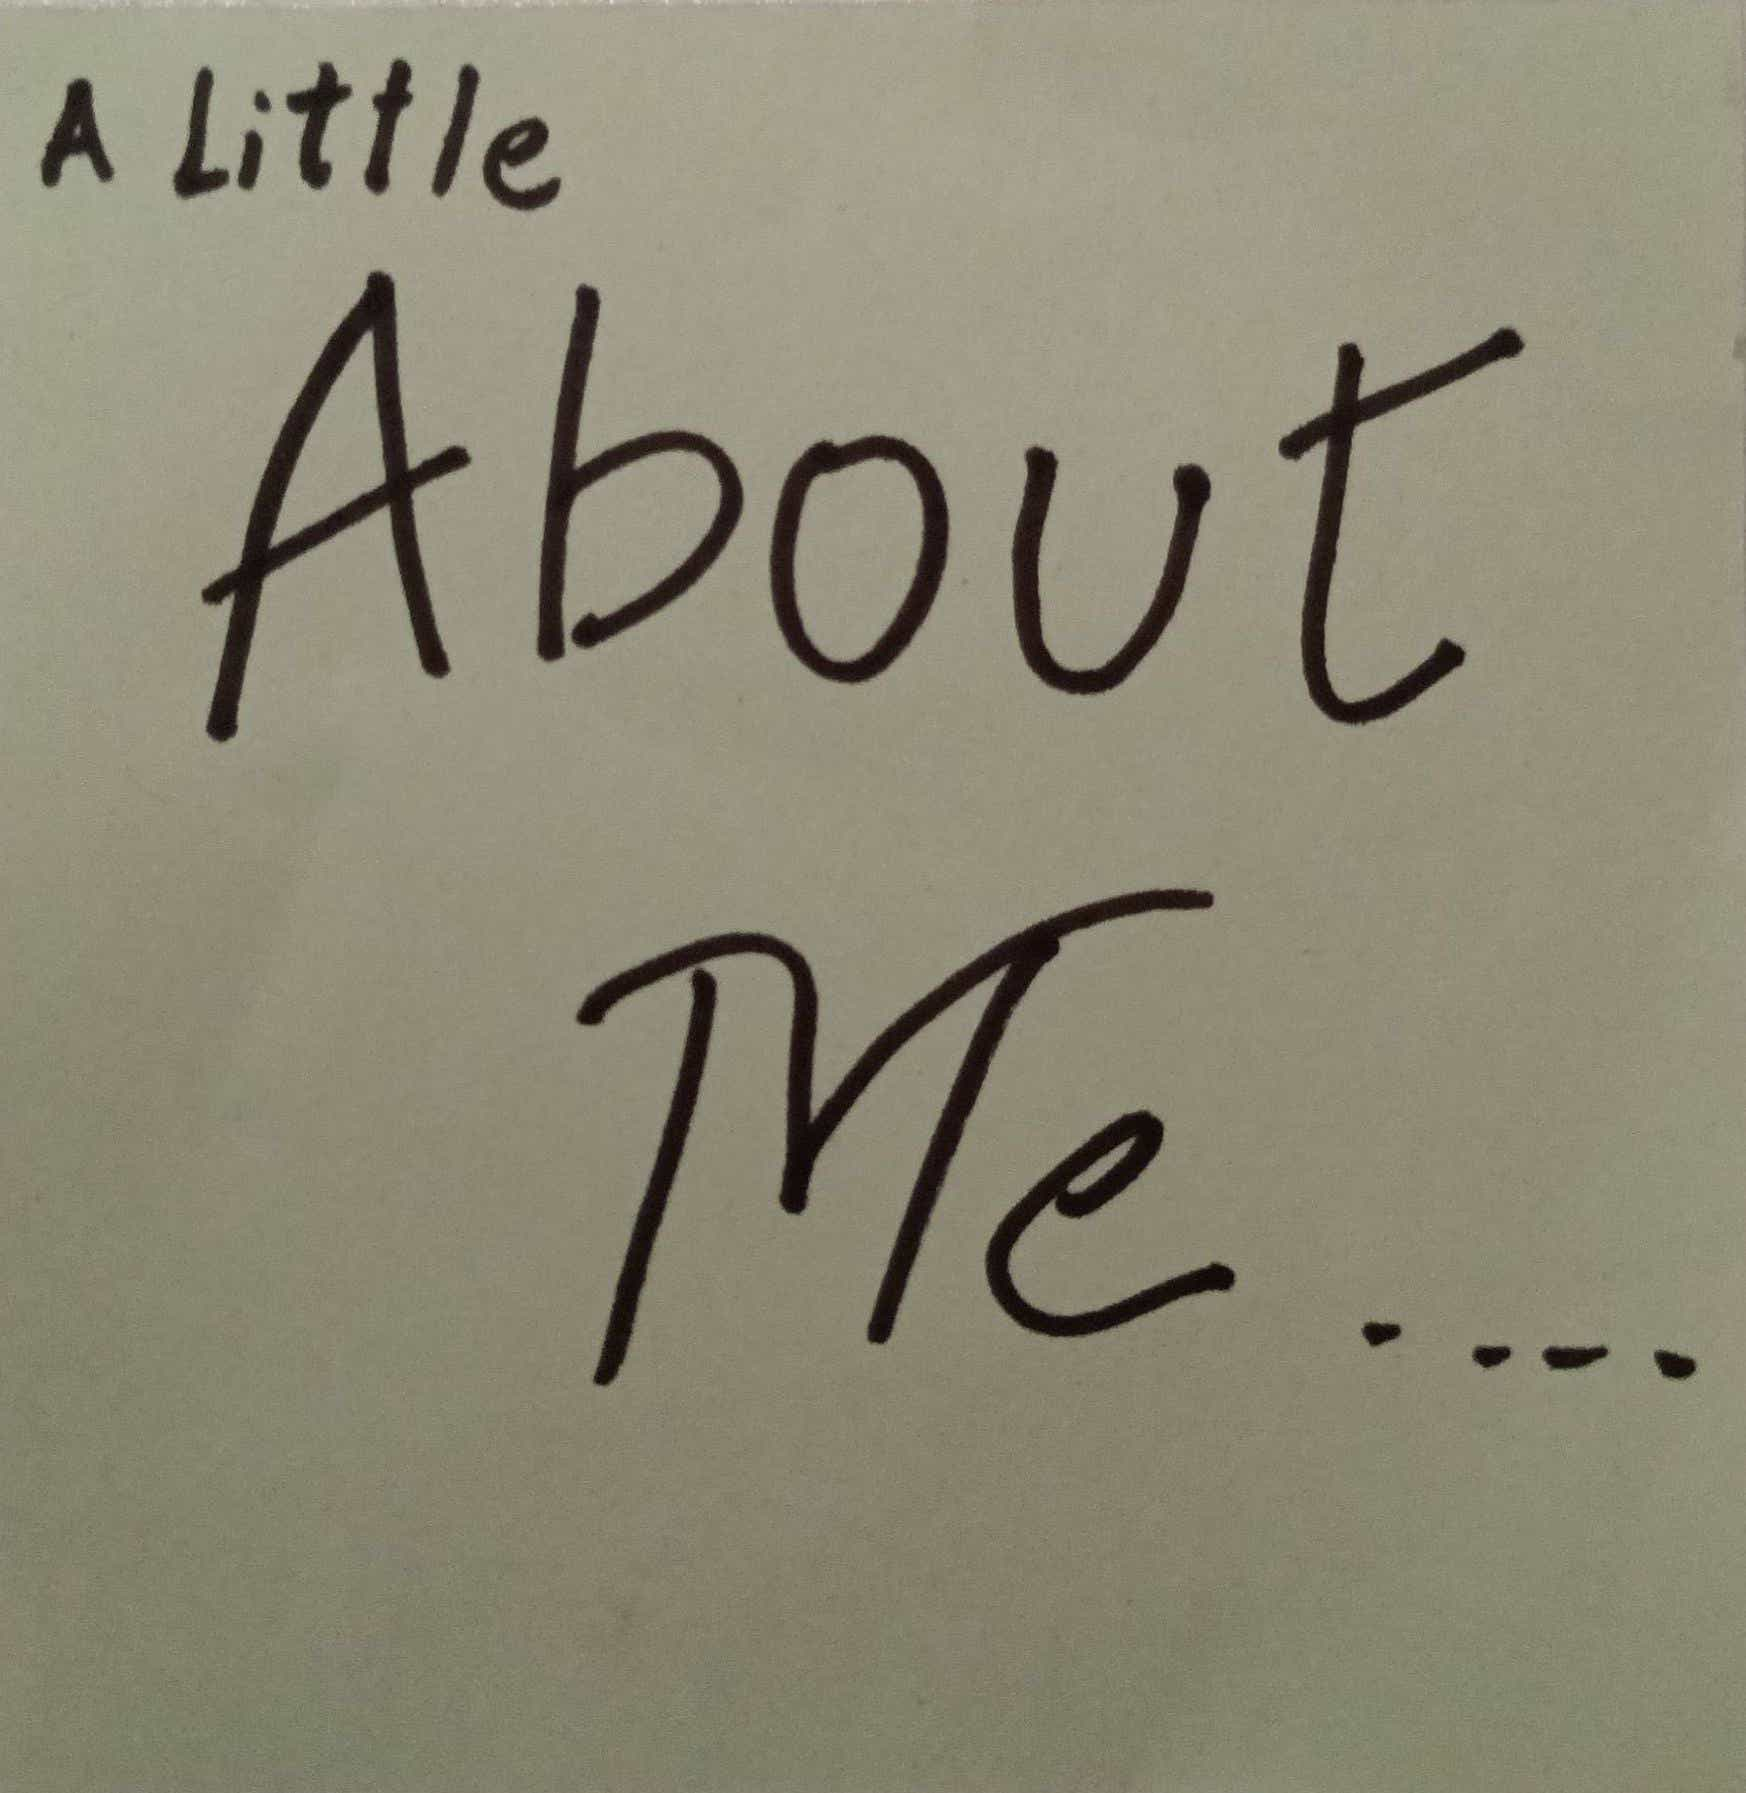 A Little
About
Me....